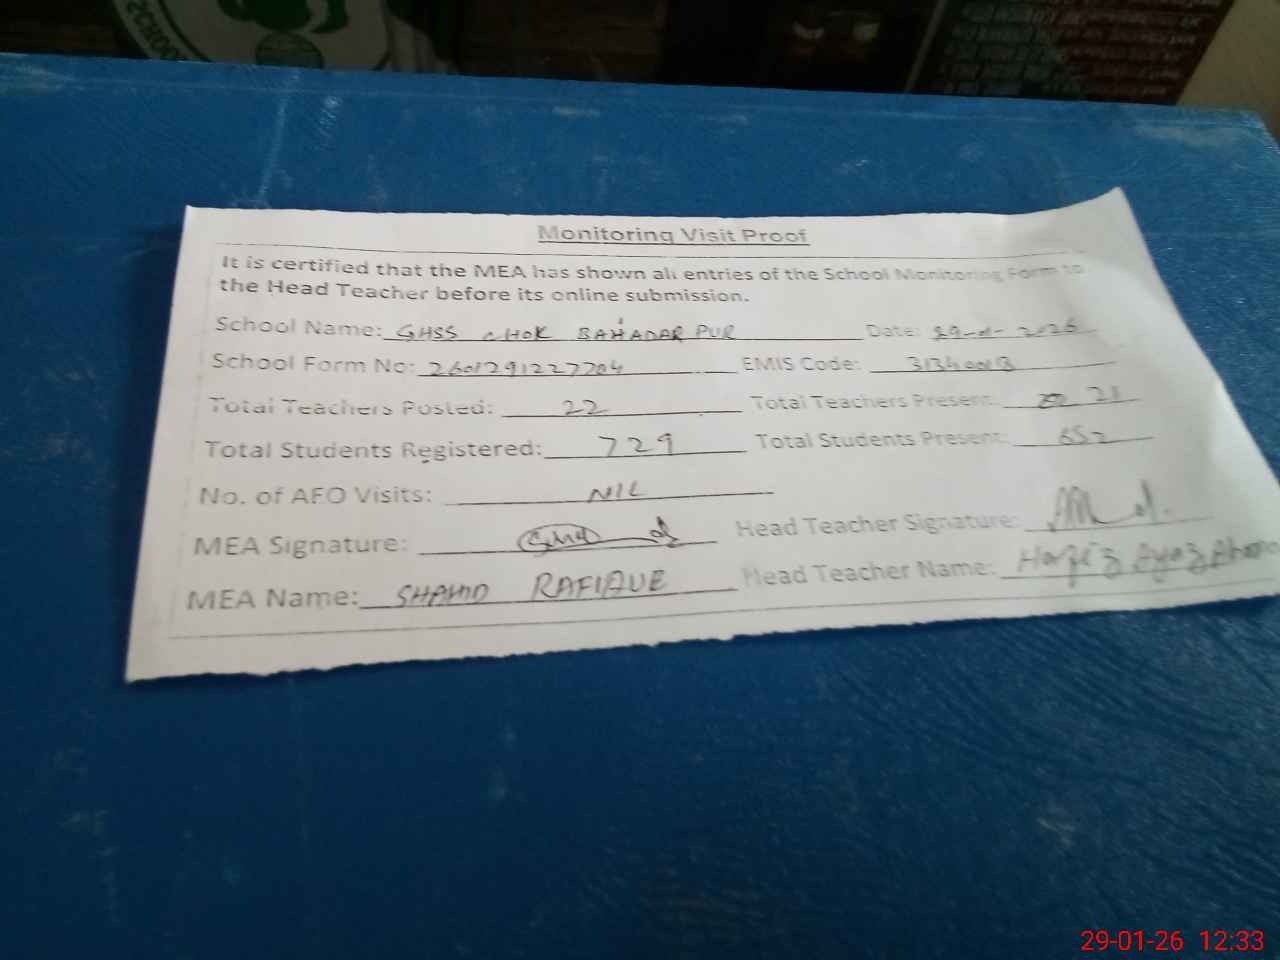 Monitoring Visit Proof
It is certified that the MEA has shown all entries of the School Monitoring Form to
the Head Teacher before its online submission.
School Name: GHSS CHOK BAHADAR PUR Date: 29-01-2026
School Form No: 2601291227204 EMIS Code:
Total Teachers Posted: 22 Total Teachers Present: 21
Total Students Registered: 729 Total Students Present: 652
No. of AFO Visits: NIL
MEA Signature: Head Teacher Signature:
MEA Name: SHAHID RAFIQUE Head Teacher Name: Hafiz Ayaz
29-01-26 12:33